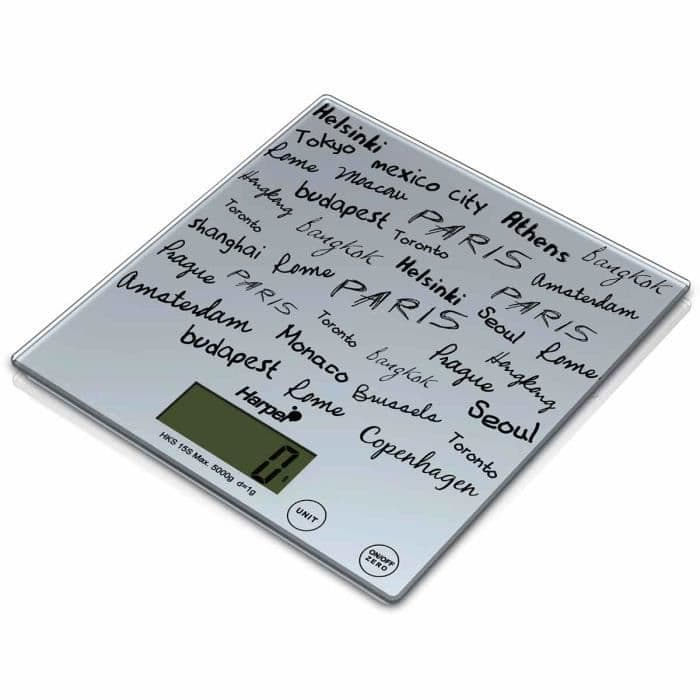 Helsinki
Tokyo mexico city Athens Bangkok
Rome Moscow PARIS Amsterdam
Hongkong budapest Toronto PARIS
Toronto Bangkok Helsinki Seoul Rome
shanghai Rome PARIS Hongkong
Prague PARIS Toronto Prague Seoul
Amsterdam Monaco Bangkok Toronto
budapest Rome Brussels
Copenhagen
Harper
0 g
HKS 15S Max. 5000g d=1g
UNIT
ON/OFF
ZERO